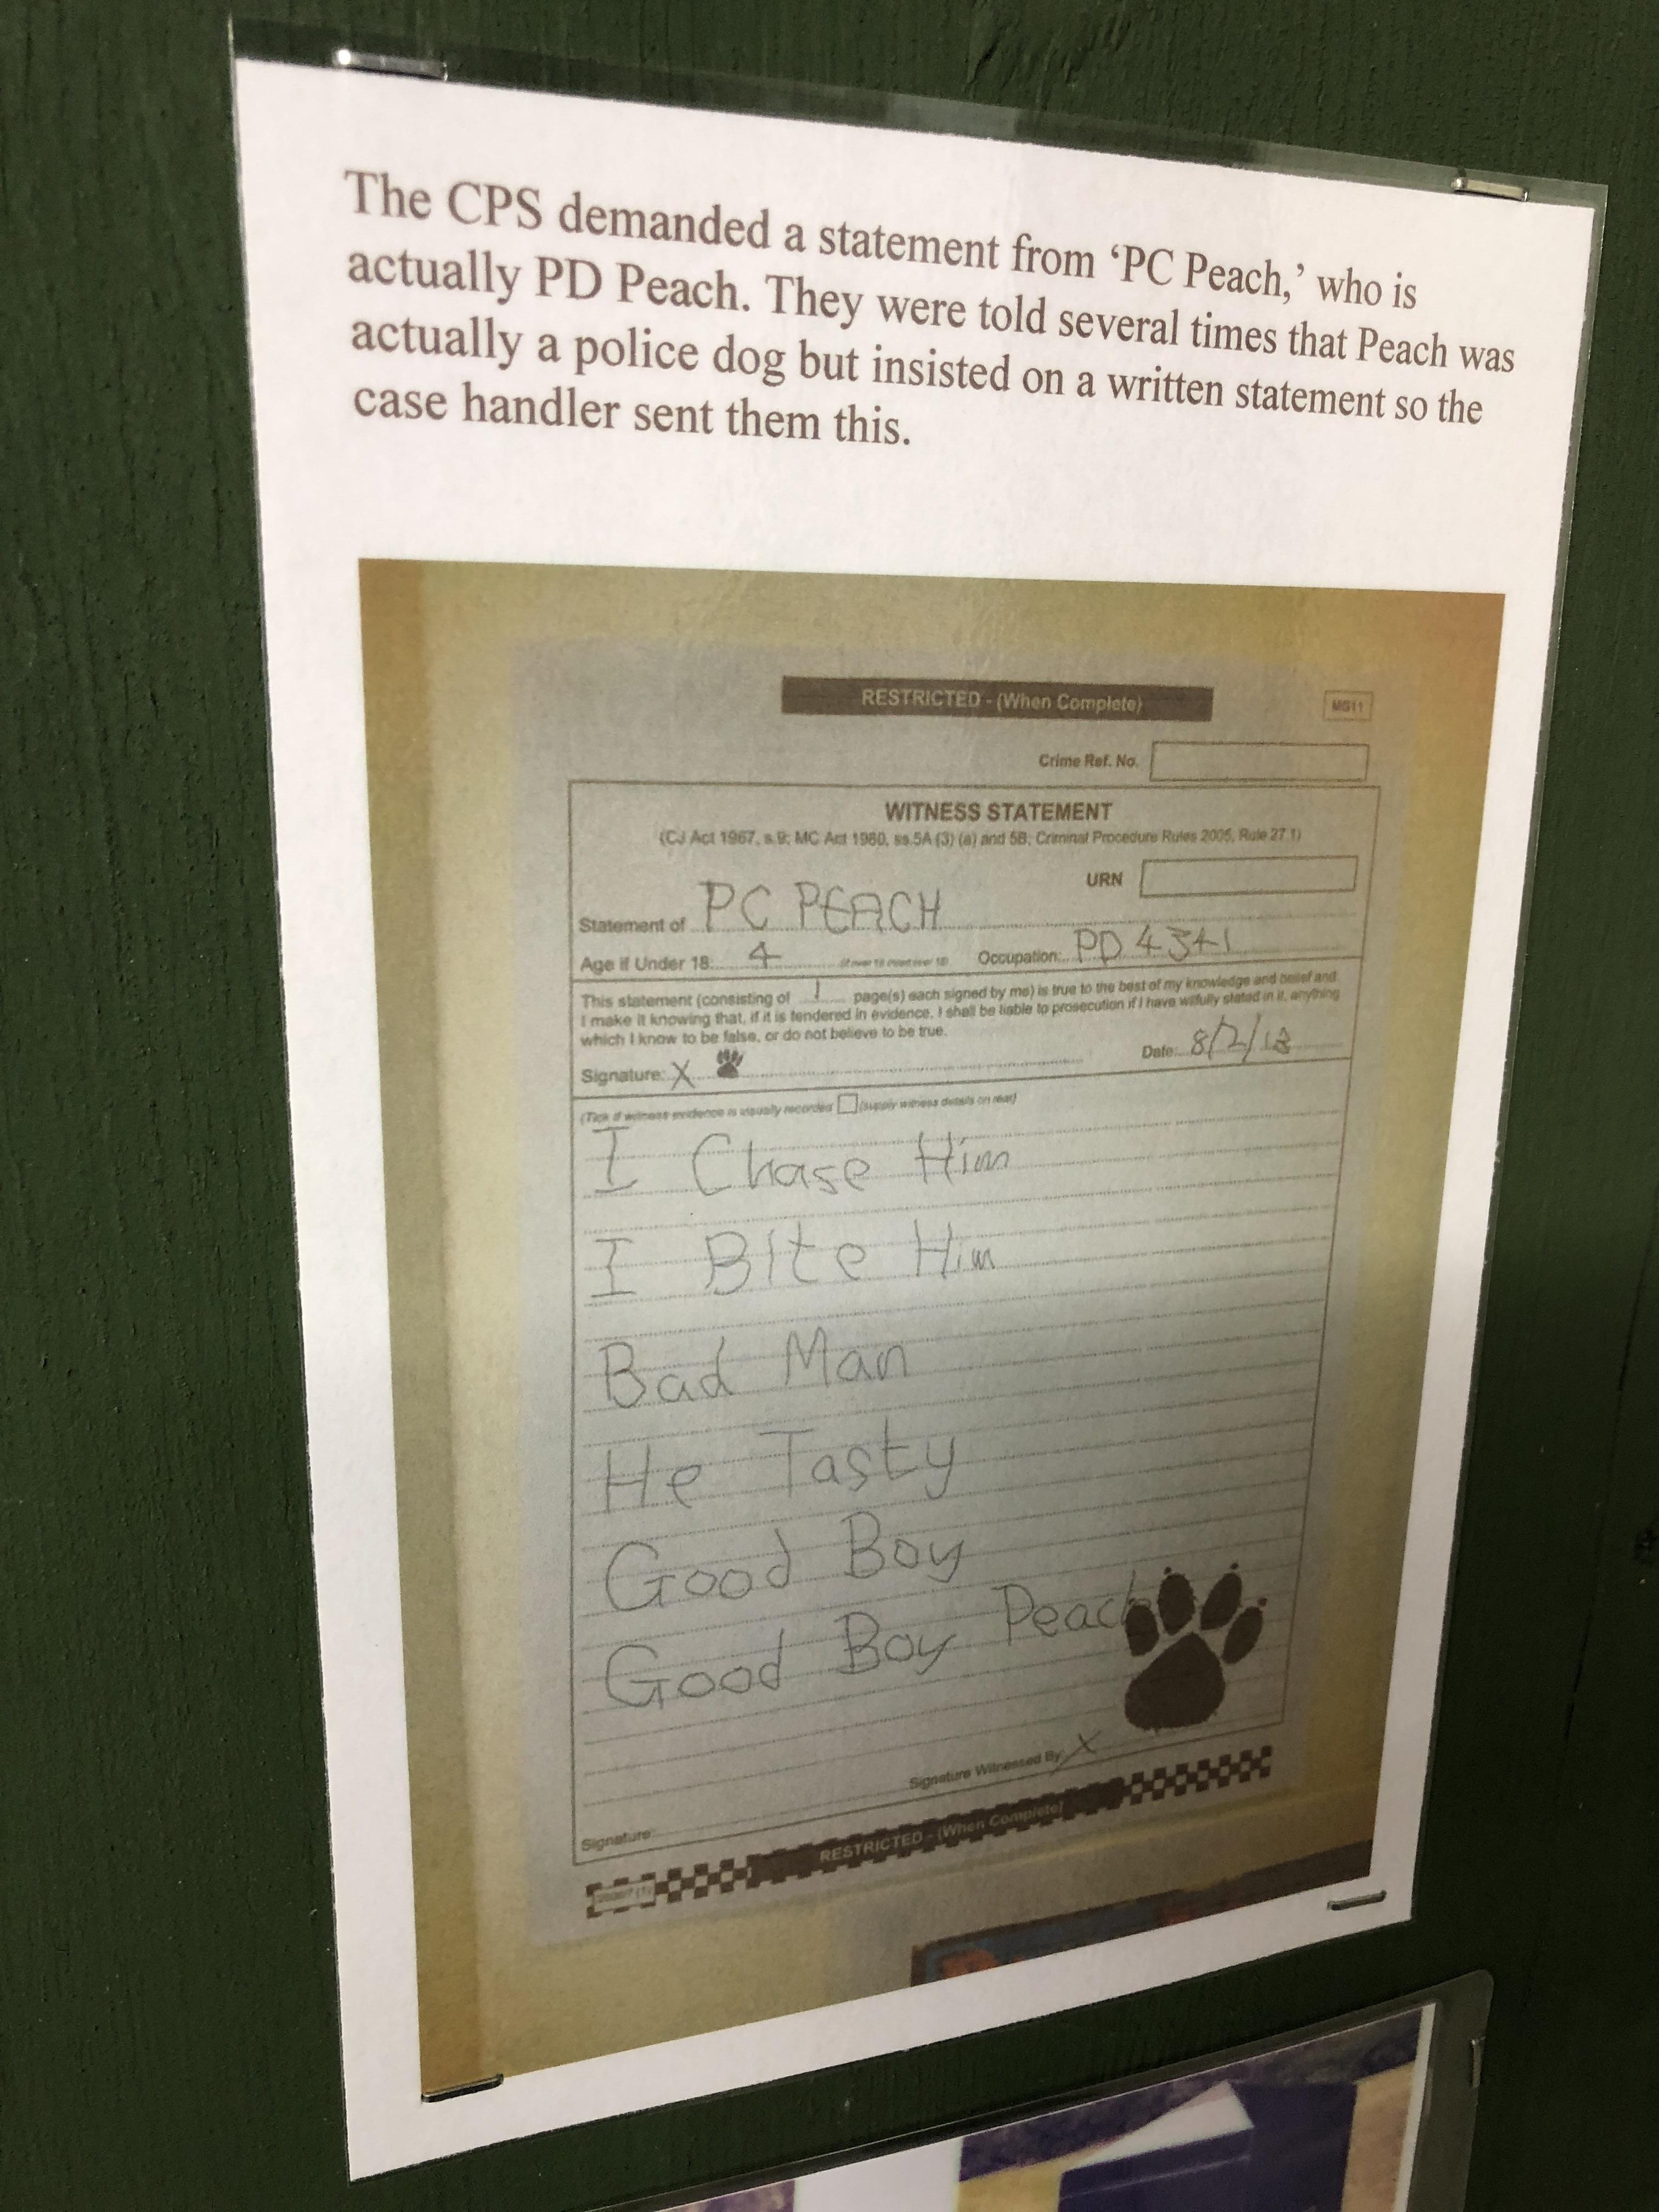 The CPS demanded a statement from ‘PC Peach,’ who is
actually PD Peach. They were told several times that Peach was
actually a police dog but insisted on a written statement so the
case handler sent them this.
RESTRICTED - (When Complete)
MG11
Crime Ref. No.
WITNESS STATEMENT
(CJ Act 1967, s.9; MC Act 1980, ss.5A (3) (a) and 5B; Criminal Procedure Rules 2005, Rule 27.1)
URN
Statement of PC PEACH
Age if Under 18: 4 (if over 18 insert over 18) Occupation: PD 4341
This statement (consisting of 1 page(s) each signed by me) is true to the best of my knowledge and belief and
I make it knowing that, if it is tendered in evidence, I shall be liable to prosecution if I have wilfully stated in it, anything
which I know to be false, or do not believe to be true.
Signature: X Date: 8/2/13
(Tick if witness evidence is visually recorded (supply witness details on rear)
I Chase Him
I BIte Him
Bad Man
He Tasty
Good Boy
Good Boy Peach
Signature Witnessed By X
Signature
RESTRICTED - (When Complete)